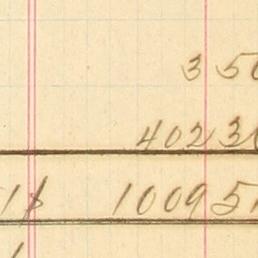 350
40230
1$ 100951